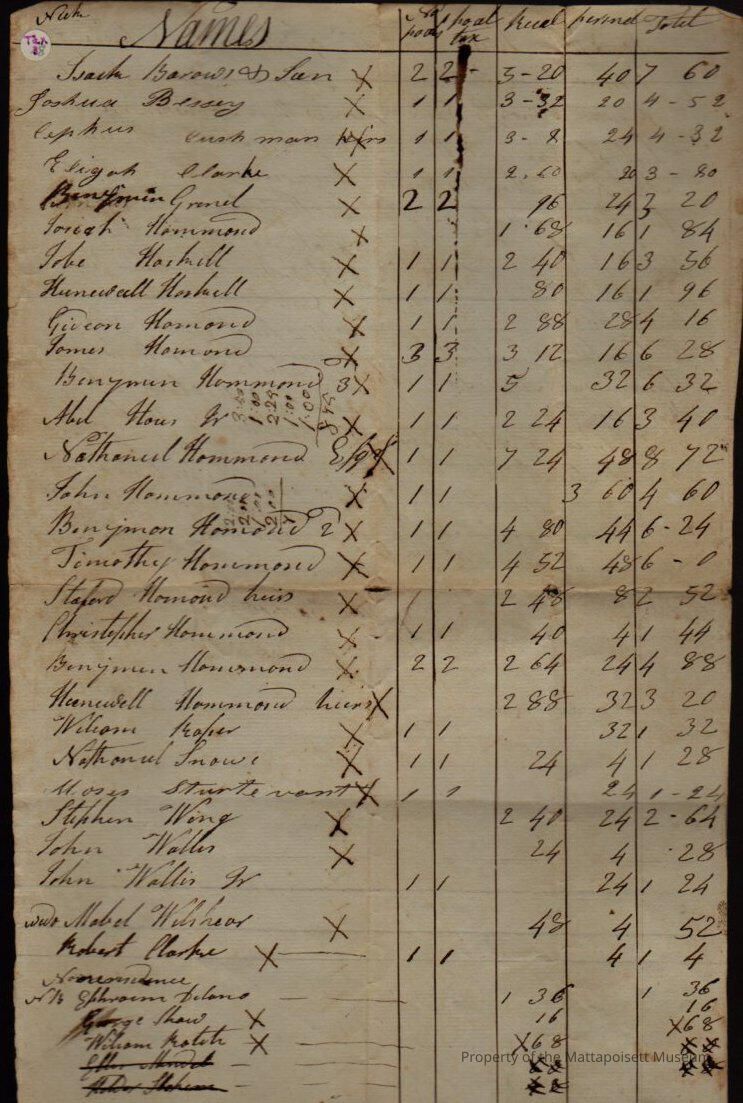 Names No pools pool tax Real persnel Totel
Isack Barows & Son X 2 2 5-20 40 7 60
Joshua Bessey X 1 1 3-32 20 4-52
Cephus Cushman Heirs 1 1 3-8 24 4-32
Eligah Clarke X 1 1 2.60 20 3-80
Benjmin X 2 2 96 24 3 20
Joseph Hammond X 1 68 16 1 84
Jobe Haskell X 1 1 2 40 16 3 56
Hunewell Haskell X 1 1 80 16 1 96
Gideon Hamond X 1 1 2 88 28 4 16
James Hamond X 3 3 3 12 16 6 28
Benjmin Hammond 3 X 1 1 5 32 6 32
Abel Jr X 1 1 2 24 16 3 40
Nathaniel Hammond Esqr X 1 1 7 24 48 8 72
John Hammond X 1 1 3 60 4 60
Benjmon Hamond 2 X 1 1 4 80 44 6-24
Timothy Hammond X 1 1 4 52 48 6-0
Staford Hamond heirs X 2 48 8 2 52
Christopher Hammond X 1 1 40 4 1 44
Benjmin Hammond X 2 2 2 64 24 4 88
Hunewell Hammond heirs X 2 88 32 3 20
Wiliam X 1 1 32 1 32
Nathaniel Snow X 1 1 24 4 1 28
Moses Sturtevant X 1 1 24 1-24
Stephen Wing X 2 40 24 2-64
John Wallis X 24 4 28
John Wallis Jr 1 1 24 1 24
Mabel Wilshear X 48 4 52
Robert Clarke X 1 1 4 1 4
NB Ephraim Delano 1 36 1 36
George Shaw X 16 16
William Rotch X X68 X68
Property of the Mattapoisett Museum